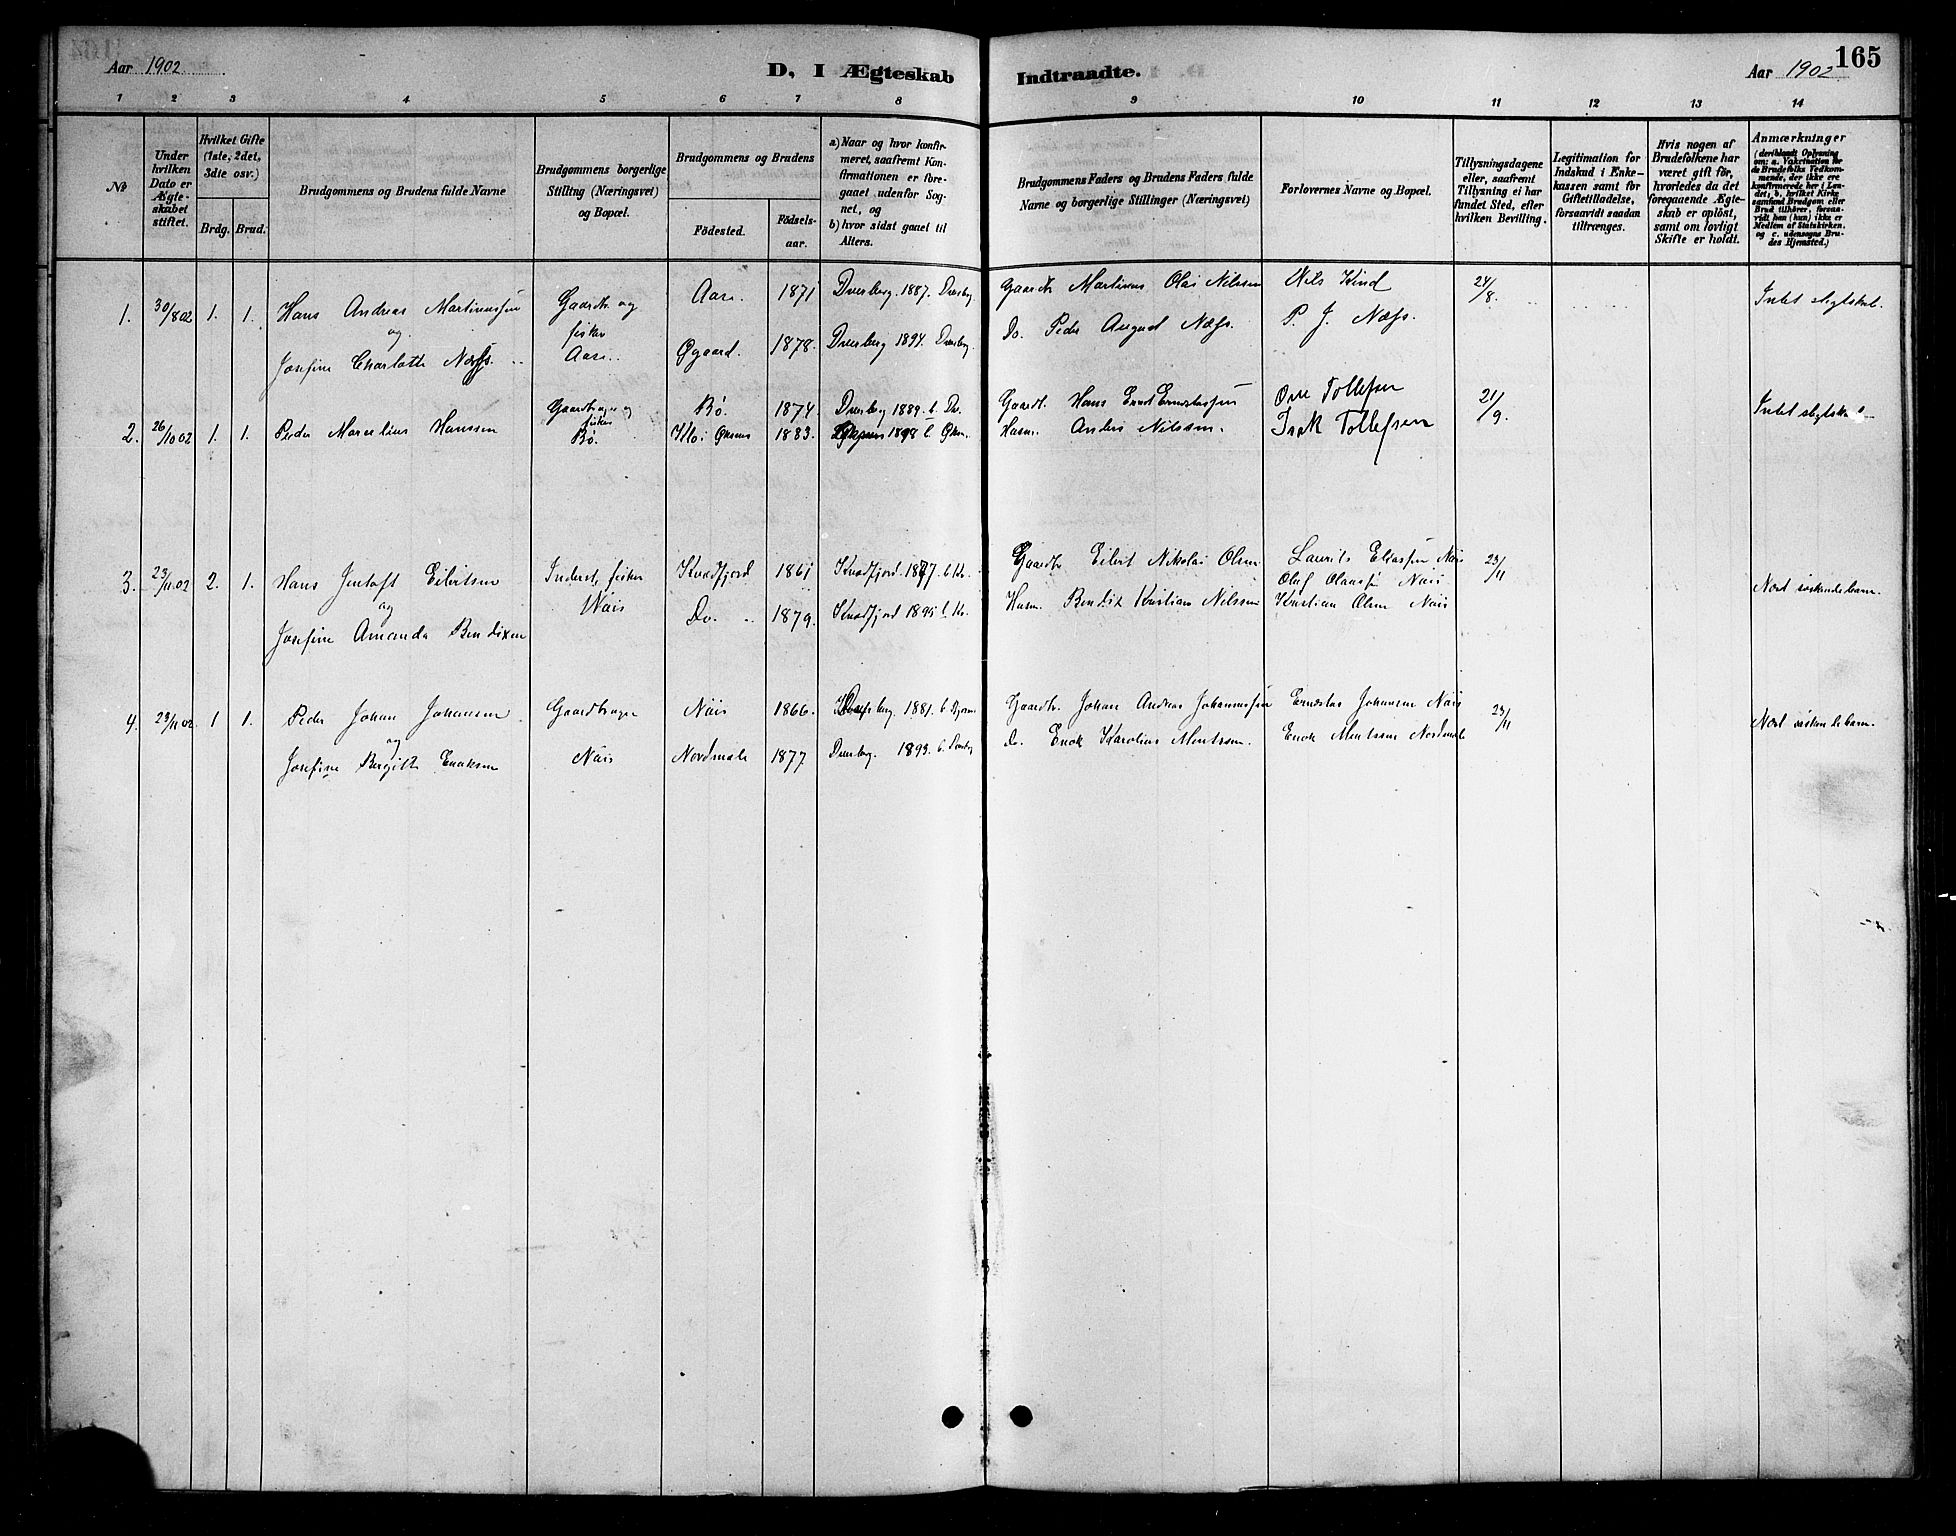 Aar 1902
D, I Ægteskab Indtraadte.
Aar 1902
165
1 2 3 4 5 6 7 8 9 10 11 12 13 14
No
Under hvilken Dato er Ægteskabet stiftet.
Hvilket Gifte (1ste, 2det, 3die osv.)
Brdg. Brud.
Brudgommens og Brudens fulde Navne
Brudgommens borgerlige Stilling (Næringsvei) og Bopæl.
Brudgommens og Brudens
Födested.
Födselsaar.
a) Naar og hvor konfirmeret, saafremt Konfirmationen er foregaaet udenfor Sognet, og
b) hvor sidst gaaet til Alters.
Brudgommens Faders og Brudens Faders fulde Navne og borgerlige Stillinger (Næringsvei)
Forlovernes Navne og Bopæl.
Tillysningsdagene eller, saafremt Tillysning ei har fundet Sted, efter hvilken Bevilling.
Legitimation for Indskud i Ænkekassen samt for Giftetilladelse, forsaavidt saadan tiltrænges.
Hvis nogen af Brudefolkene har været gift før, hvorledes da det foregaaende Ægteskab er opløst, samt om lovligt Skifte er holdt.
Anmærkninger
(deriblandt Oplysning om: a. Vakcination for de Brudefolks Vedkommende, der ikke ere konfirmerede her i Landet, b. hvilket Kirkesamfund Brudgom eller Brud tilhører, forsaavidt han (hun) ikke er Medlem af Statskirken, og c. udensogns Brudes Hjemsted.)
1. 30/8 02 1. 1. Hans Andreas Martinussen
og
Josefine Charlotte Næss.
Gaardbr og
fisker
Aase.
Aase. 1871 Dverberg. 1887. Dverberg
Øgaard. 1878. Dverberg 1894. Dverberg.
Gaardbr Martinus Olai Nilssen
Do. Peder August Næss.
Nils Kind
P. J. Næss.
24/8.
Intet slegtskab.
2. 26/10 02 1. 1. Peder Marselius Hanssen
Gaardbruger og
fisker
Bø.
Bø. 1874. Dverberg 1889. b. Dv.
1883. 1898 b. Øksn.
Gaardb. Hans Ernst Ernstssen
Husm. Anders Nilssen.
Ove Tollefsen
Isak Tollefsen
21/9.
Intet slegtskab
3. 23/11 02 2. 1. Hans Jentoft Eilertsen
og
Josefine Amanda Bendixen
Inderst, fisker
Nøis
Kvædfjord 1861 Kvædfjord. 1877. b. Kv.
Do. 1879. Kvædfjord 1895 b. Kv.
Gaardbr. Eilert Nikolai Olsen
Husm. Bendix Kristian Nilssen
Laurits Eliassen Nøis
Oluf Olaussen Nøis
Kristian Olsen Nøis
23/11
Næst søskendebarn.
4. 23/11 02. 1 1. Peder Johan Johansen
og
Josefine Bergitte Enoksen
Gaardbruger
Nøis
Nøis 1866. 1881.
Nordmele 1877 Dverberg. 1893. b. Dverberg
Gaardbr. Johan Andreas Johannessen
do. Enok Karolius Mentssen.
Ernestus Johansen Nøis
Enok Mentssen Nordmele
23/11
Næst søskendebarn.